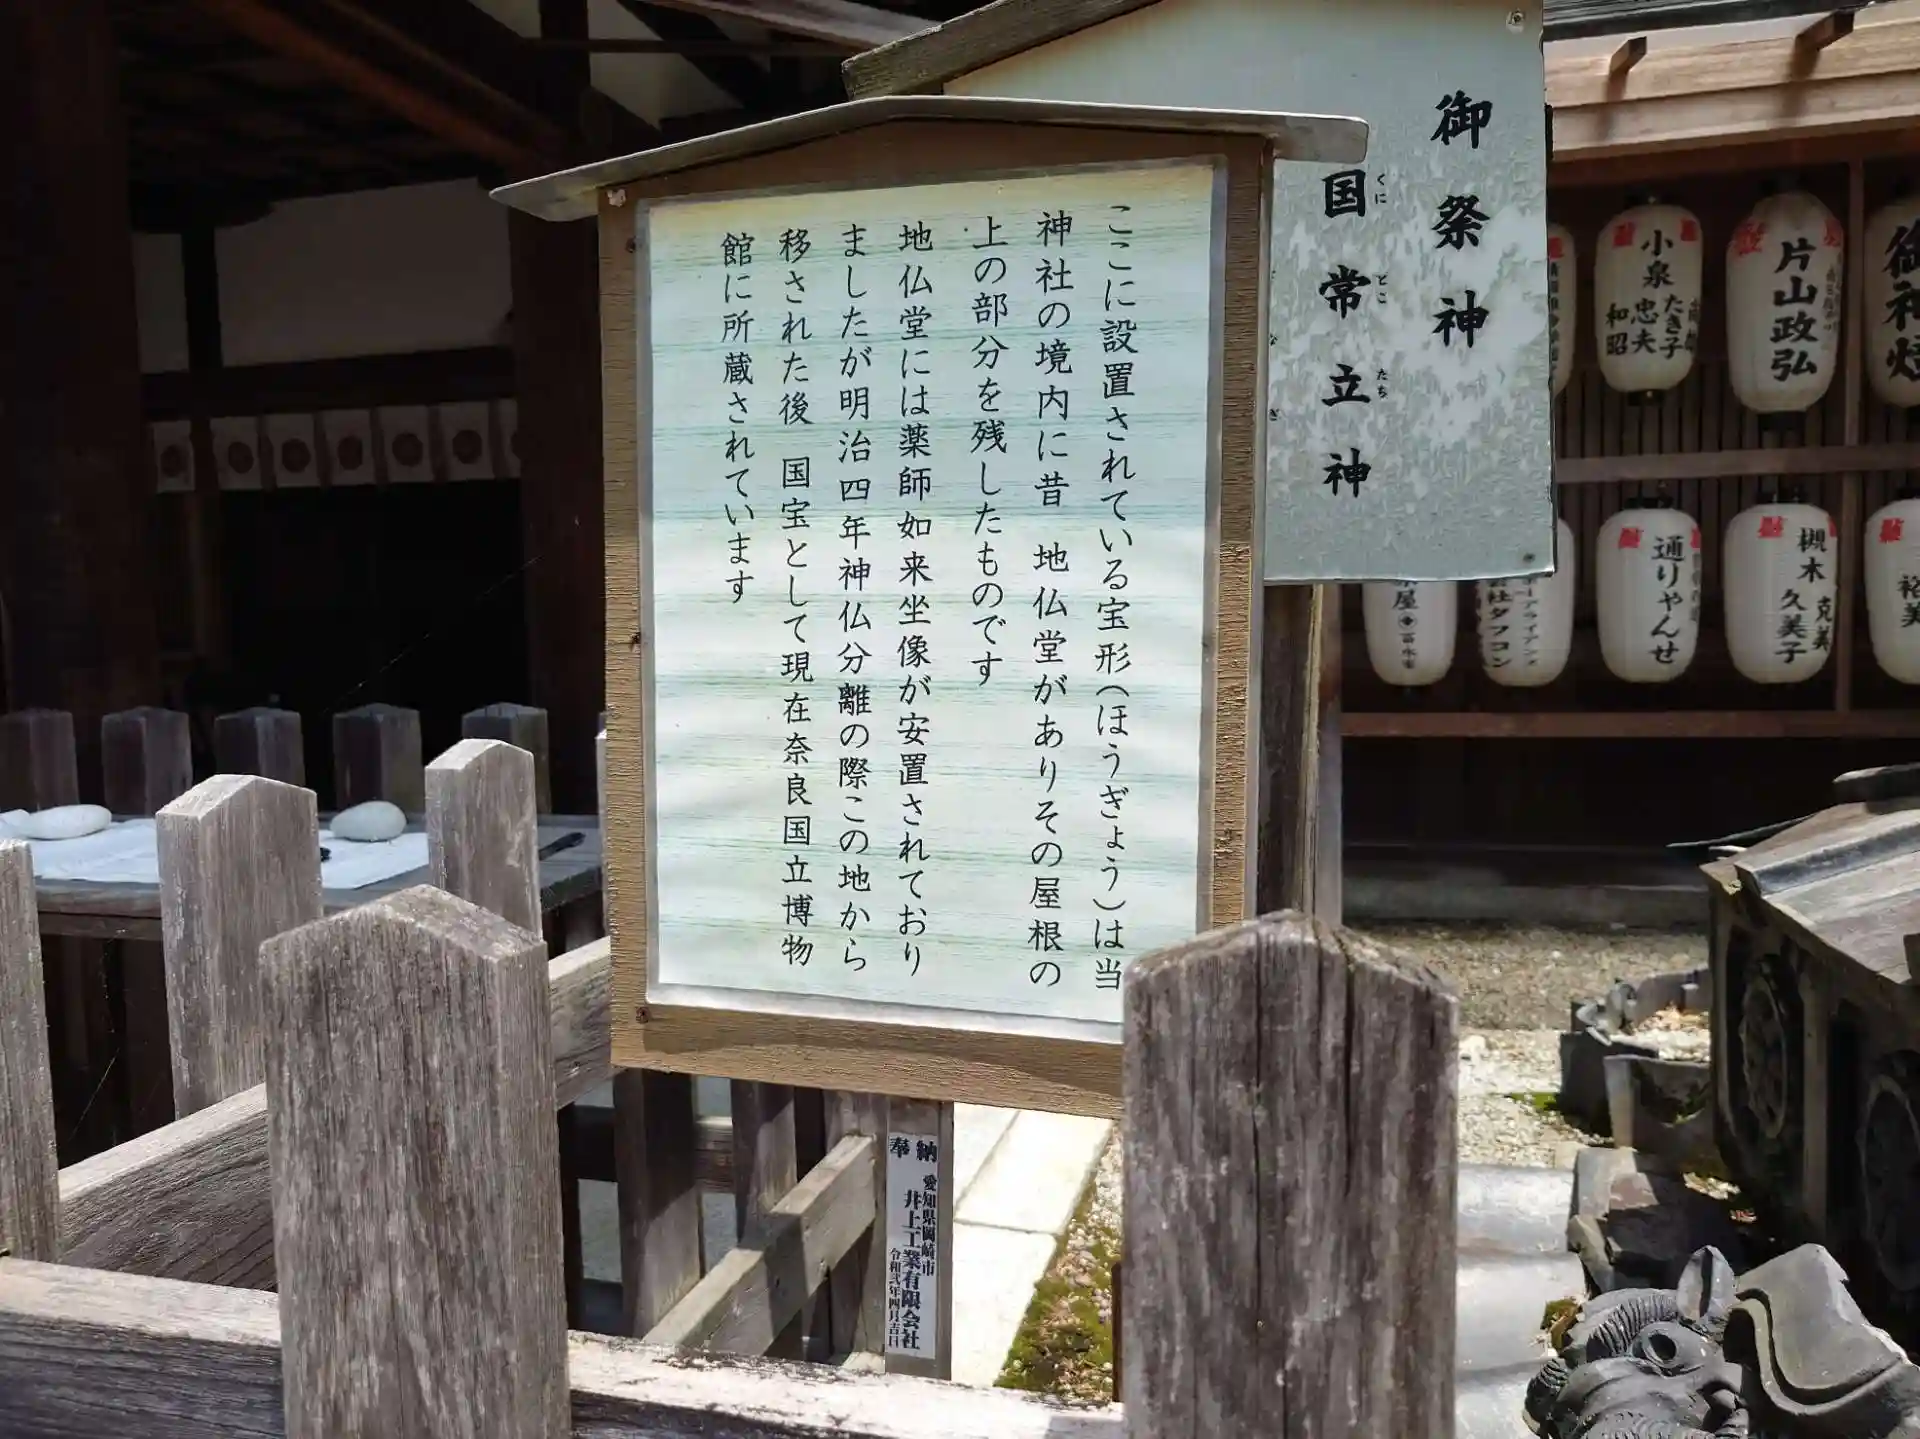 ここに設置されている宝形(ほうぎょう)は当
神社の境内に昔 地仏堂がありその屋根の
上の部分を残したものです
地仏堂には薬師如来坐像が安置されており
ましたが明治四年神仏分離の際この地から
移された後 国宝として現在奈良国立博物
館に所蔵されています
御祭神
国常立神
くに とこ たち
奉納
愛知県岡崎市
井上工業有限会社
令和弐年四月吉日
片山政弘
小泉
たき子
忠夫
和昭
槻木
克美
久美子
通りゃんせ
裕美